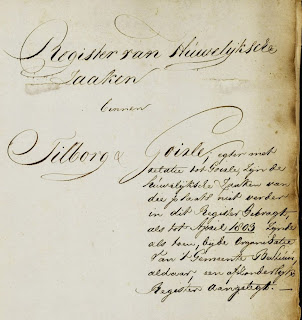 Register van Huwelyksche
Zaaken
binnen
Tilborg & Goirle, egter met
relatie tot Goirle, zyn de
huwelyksche Zaaken van
die plaats niet verder
in dit Register gebragt,
als tot April 1803 zynde
als toen, by de Organisatie
van 't Gemeente Bestuur,
aldaar, een afzonderlyk
Register aangelegt.